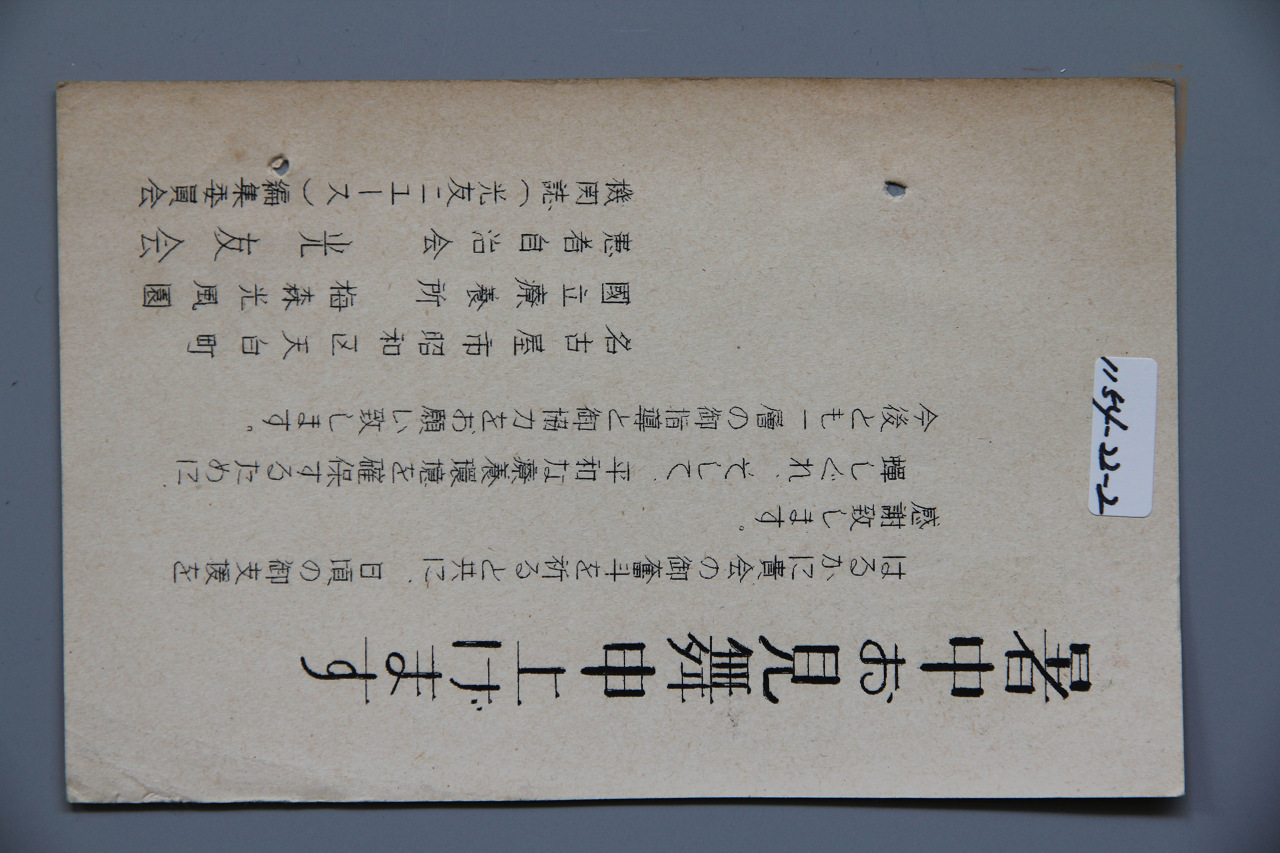 暑中お見舞申上げます
はるかに貴会の御奮斗を祈ると共に、日頃の御支援を
感謝致します。
蟬しぐれ、そして、平和な療養環境を確保するために、
今後とも一層の御指導と御協力をお願い致します。
名古屋市昭和区天白町
國立療養所 梅森光風園
患者自治会 光友会
機関誌(光友ニュース)編集委員会
1154-22-2